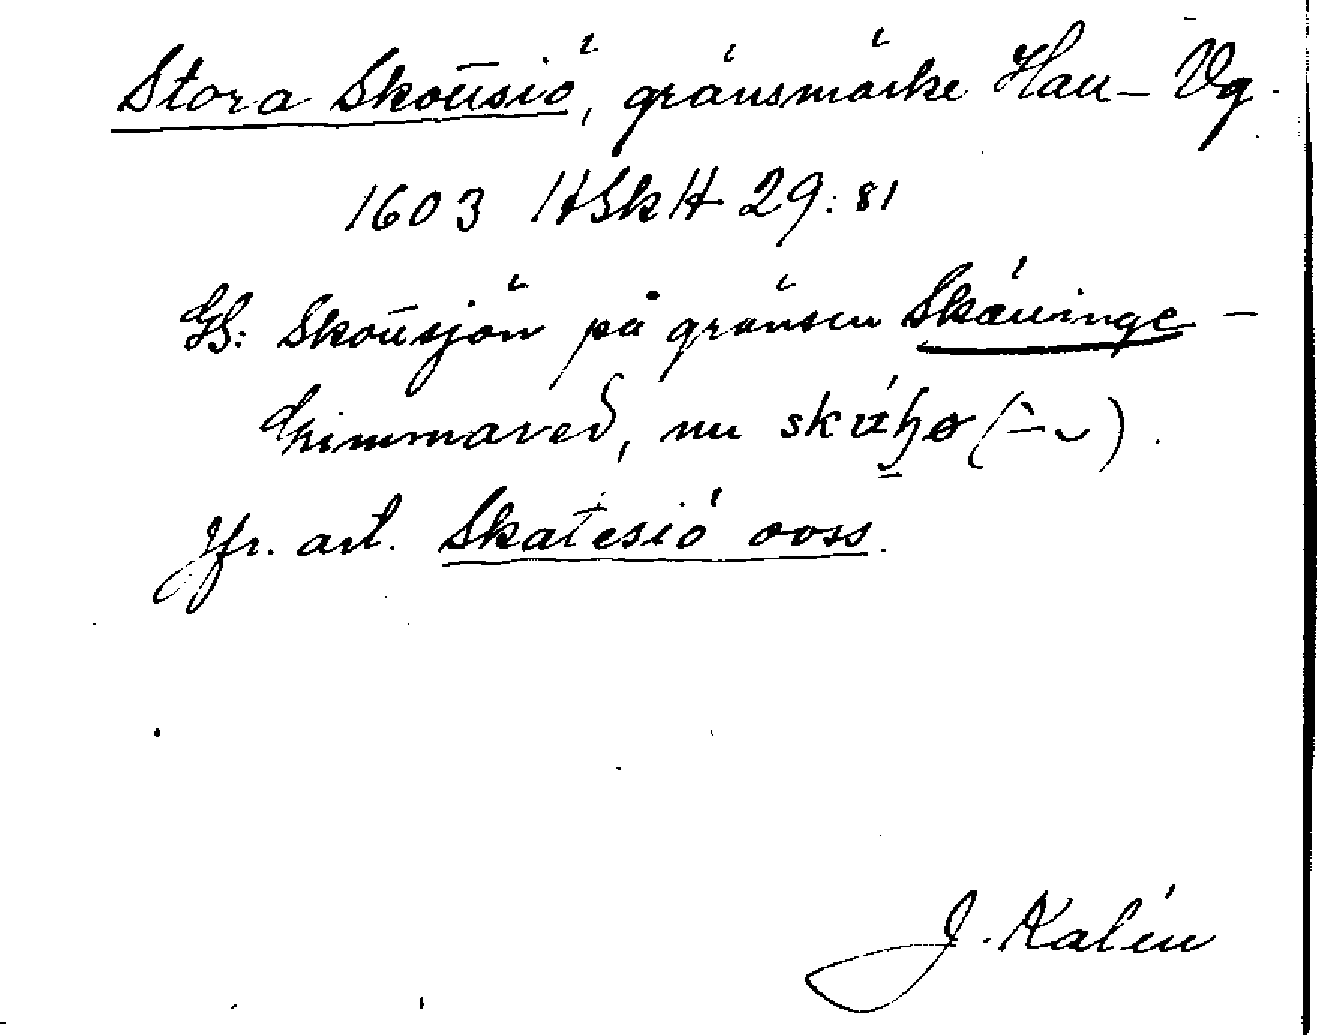 Stora Skoūsiö, gränsmärke Hall – Vg.
1603 HSkH 29:81
GS: Skoūsjön på gränsen Skäninge –
Grimmared, nu
Jfr. art. Skatesiö ooss.
J. Kalén